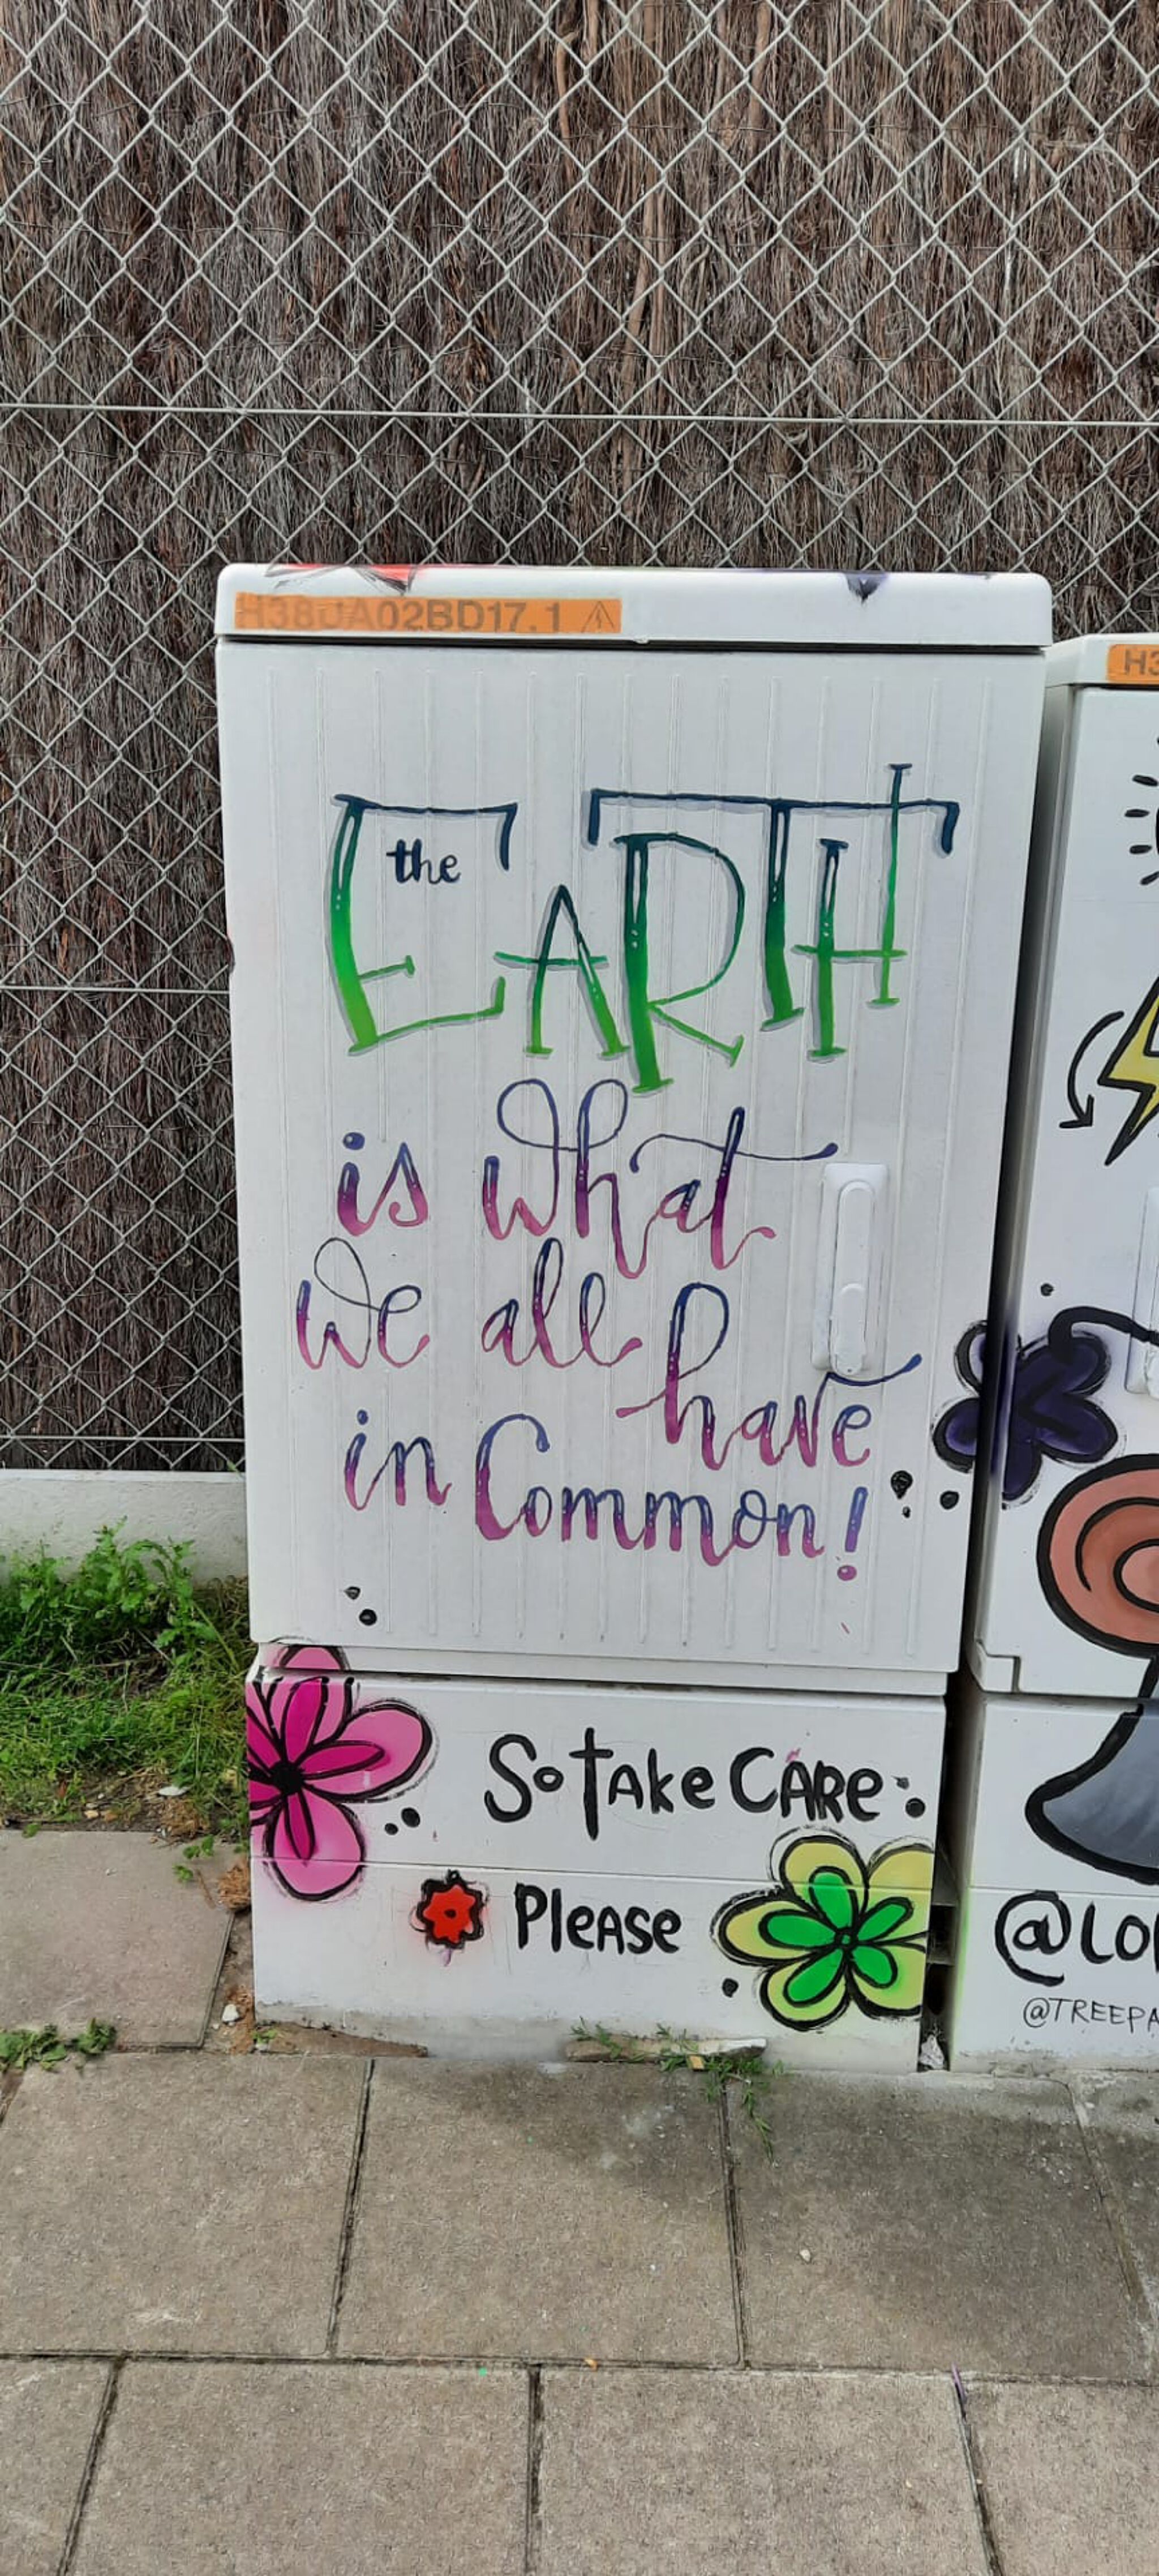 H38DA02BD17.1
H3
the
EARTH
is what
we all
have
in Common!
So TAke CARe
PleAse
@LO
@TREEPA